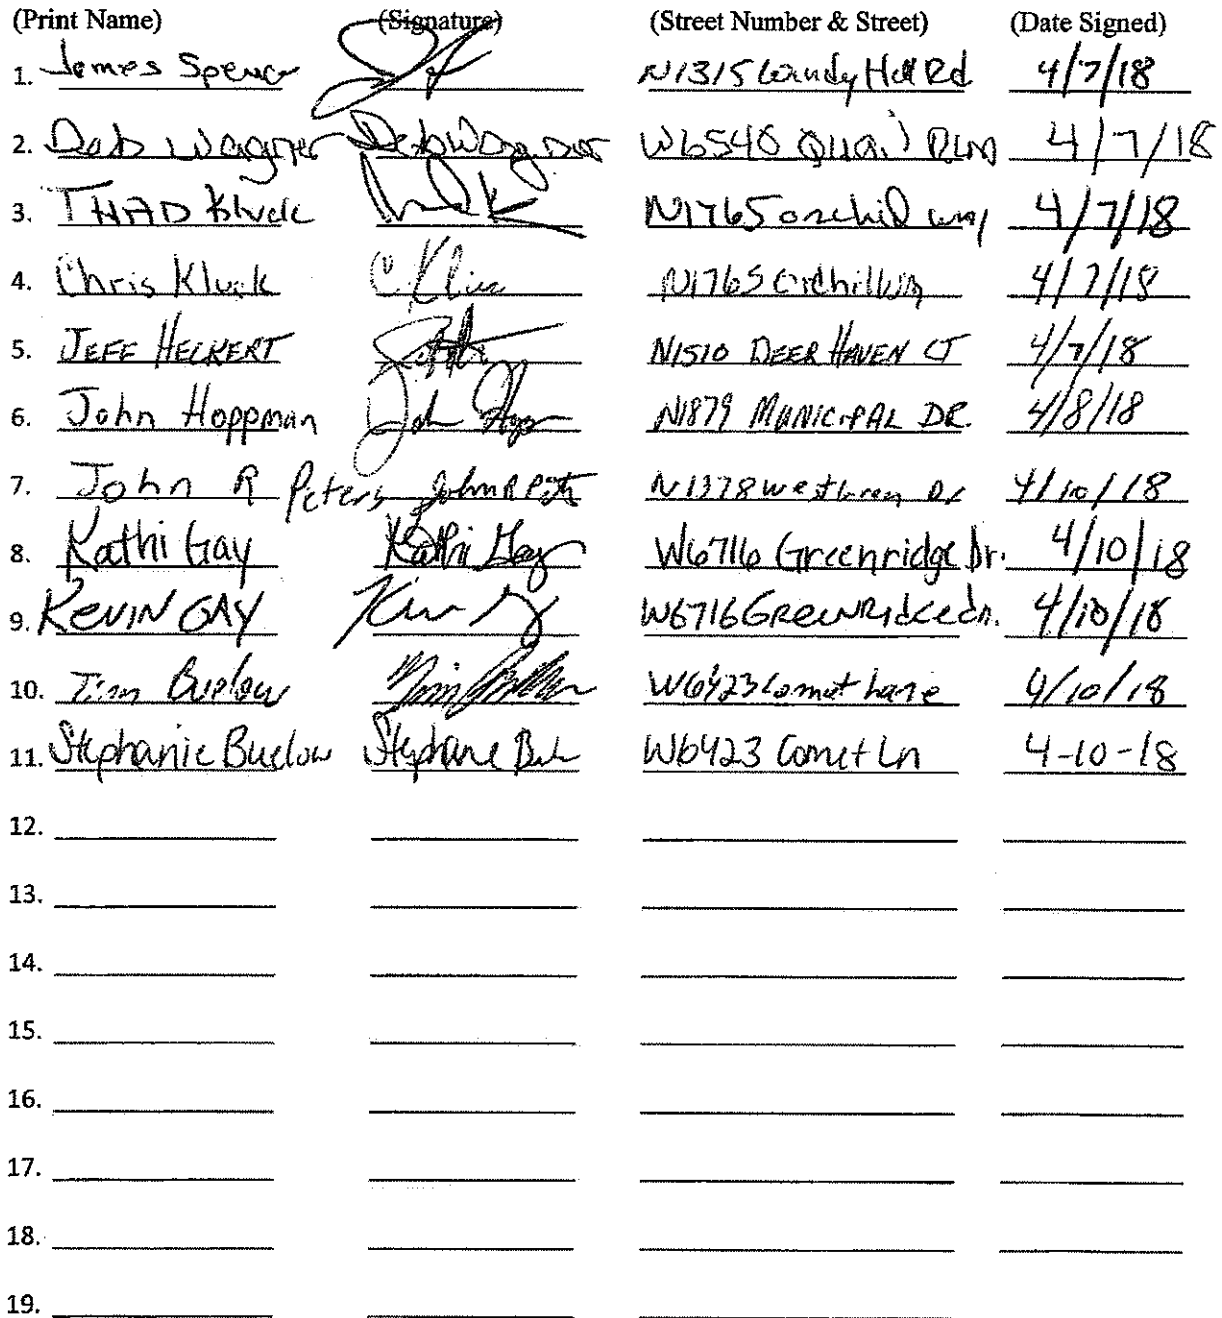 (Print Name) (Signature) (Street Number & Street) (Date Signed)
1. James Spence N1315 Windy Hill Rd 4/7/18
2. Deb Wagner Deb Wagner W6540 Quail Run 4/7/18
3. THAD Kluck N1765 orchid way 4/7/18
4. Chris Kluck N1765 4/7/18
5. JEFF HECKERT N1510 DEER HAVEN CT 4/7/18
6. John Hoppman John N1879 MUNICIPAL DR. 4/8/18
7. John R Peters John R N1378 Dr 4/10/18
8. Kathi Gay Kathi Gay W6716 Greenridge Dr. 4/10/18
9. KEVIN GAY W6716 GReeNRidge dr. 4/10/18
10. Tim Buelow W6423 Comet Lane 4/10/18
11. Stephanie Buelow Stephanie W6423 Comet Ln 4-10-18
12.
13.
14.
15.
16.
17.
18.
19.